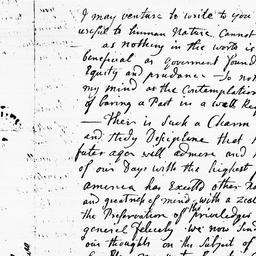 I may venture to write to you
useful to human Nature. Cannot
as nothing in the world is
beneficial as government found
Equity and prudence — So not
my mind as the Contemplation
of baring a Part in a well Reg
— Their is Such a Charm
and Stedy Discipline that
futer ages will admire and
of our Days with the highest
america has Exceld other
and greatness of mind, with a zeal
the Preservation of the priviledges
general felicity. we now
our thoughts on the Subject of